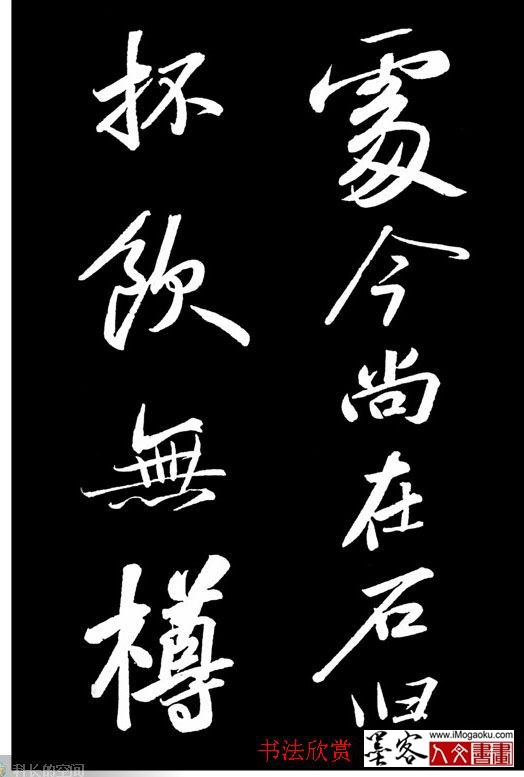 處今尚在石臼
杯飲無樽
书法欣赏
墨客
www.iMogaoku.com
人文書畫
科长的空间